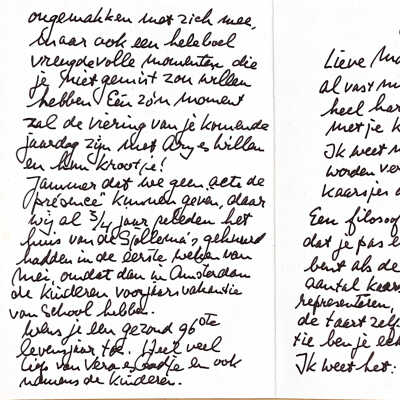 ongemakken met zich mee,
maar ook een heleboel
vreugdevolle momenten die
je niet gemist zou willen
hebben. Eén zo'n moment
zal de viering van je komende
jaardag zijn met Any es Willem
en hun kroost je!
Jammer dat we geen "acte de
présence" kunnen geven, daar
wij al 3/4 jaar geleden het
huis van de Sjollema's gehuurd
hadden in de eerste weken van
mei, omdat dan in Amsterdam
de kinderen voorjaarsvakantie
van School hebben.
Wens je een gezond 96ste
levensjaar toe. Heel veel
liefs van Vera en ook
namens de kinderen.
Lieve
al vast
heel har
met je k
Ik weet
worden ver
kaarsjes
Een filosoof
dat je pas
bent als de
aantal kaars
representeren,
de taart zelf.
tie ben je
Ik weet het: